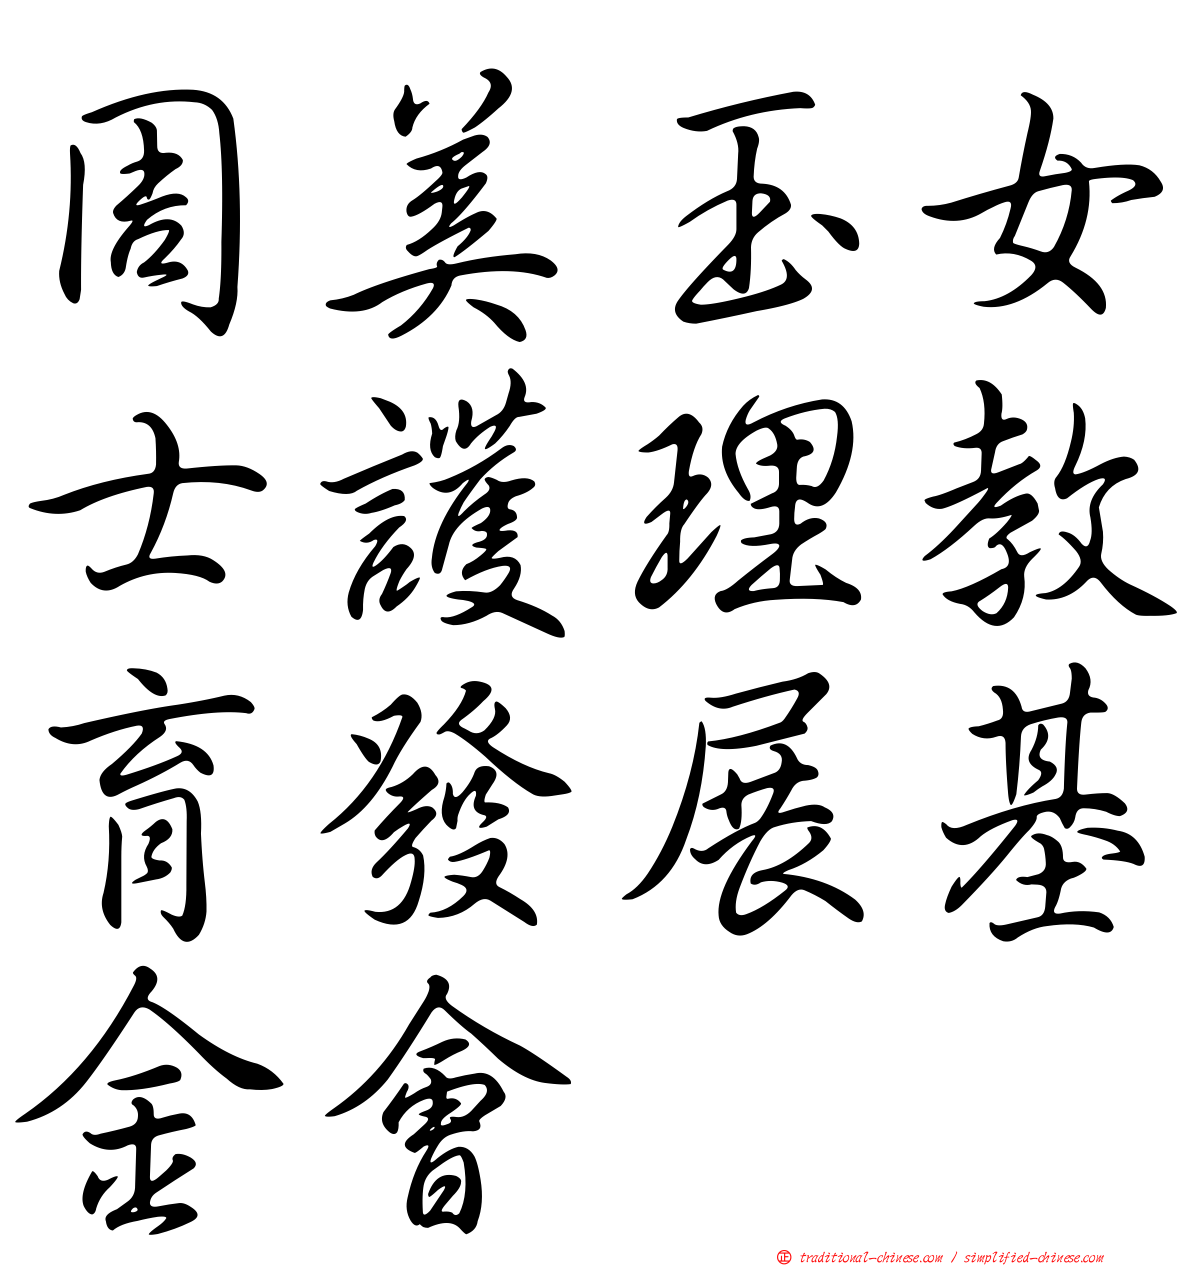 周美玉女
士護理教
育發展基
金會
正 traditional-chinese.com / simplified-chinese.com